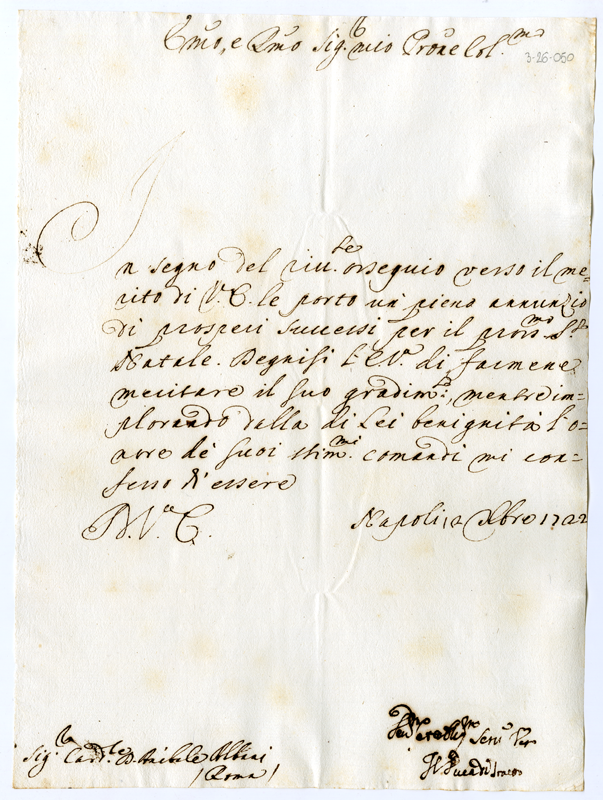 Emo, e Rmo Sig.r mio Prone Col.mo
3-26-050
In segno del riu.te osseguio verso il me=
rito di V.a E. le porto un pieno annunzio
di prosperi successi per il pross.mo S.to
Natale. Degnisi l'E.Va. di farmene
meritare il suo gradim.to, mentre im=
plorando dalla di Lei benignità l'o=
nore de suoi stim.mi comandi mi con=
fesso d'essere
D. V.a E.
Napoli, 2 Xbre 1722
Sig.r Card.le Anibale Albani
(Roma)
Serv.e Vero
Il Duca di